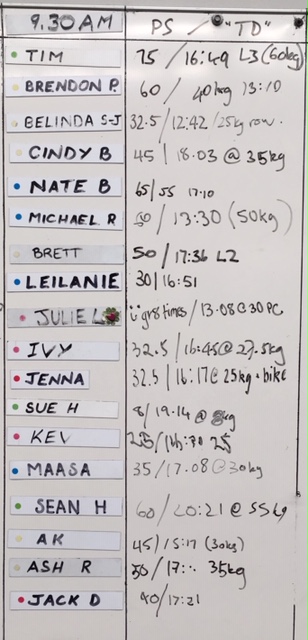 9.30AM PS / "TD"
TIM 75 / 16:49 L3 (60kg)
BRENDON P. 60 / 40kg 13:10
BELINDA S-J 32.5 / 12:42 / 25kg row.
CINDY B 45 | 18.03 @ 35kg
NATE B 65/55 17.10
MICHAEL R 50 / 13:30 (50kg)
BRETT 50 / 17:36 L2
LEILANIE 30 | 16:51
JULIE L gr8 times / 13.08 @ 30 PC
IVY 32.5 | 16:45 @ 27.5kg
JENNA 32.5 | 16:17 @ 25kg + bike
SUE H 8/19.14 @ 8kg
KEV 25
MAASA 35/17.08 @ 30kg
SEAN H 60 / 20:21 @ 55kg
AK 45 / 15:17 (30kg)
ASH R 50 / 17: 35kg
JACK D 40/17:21